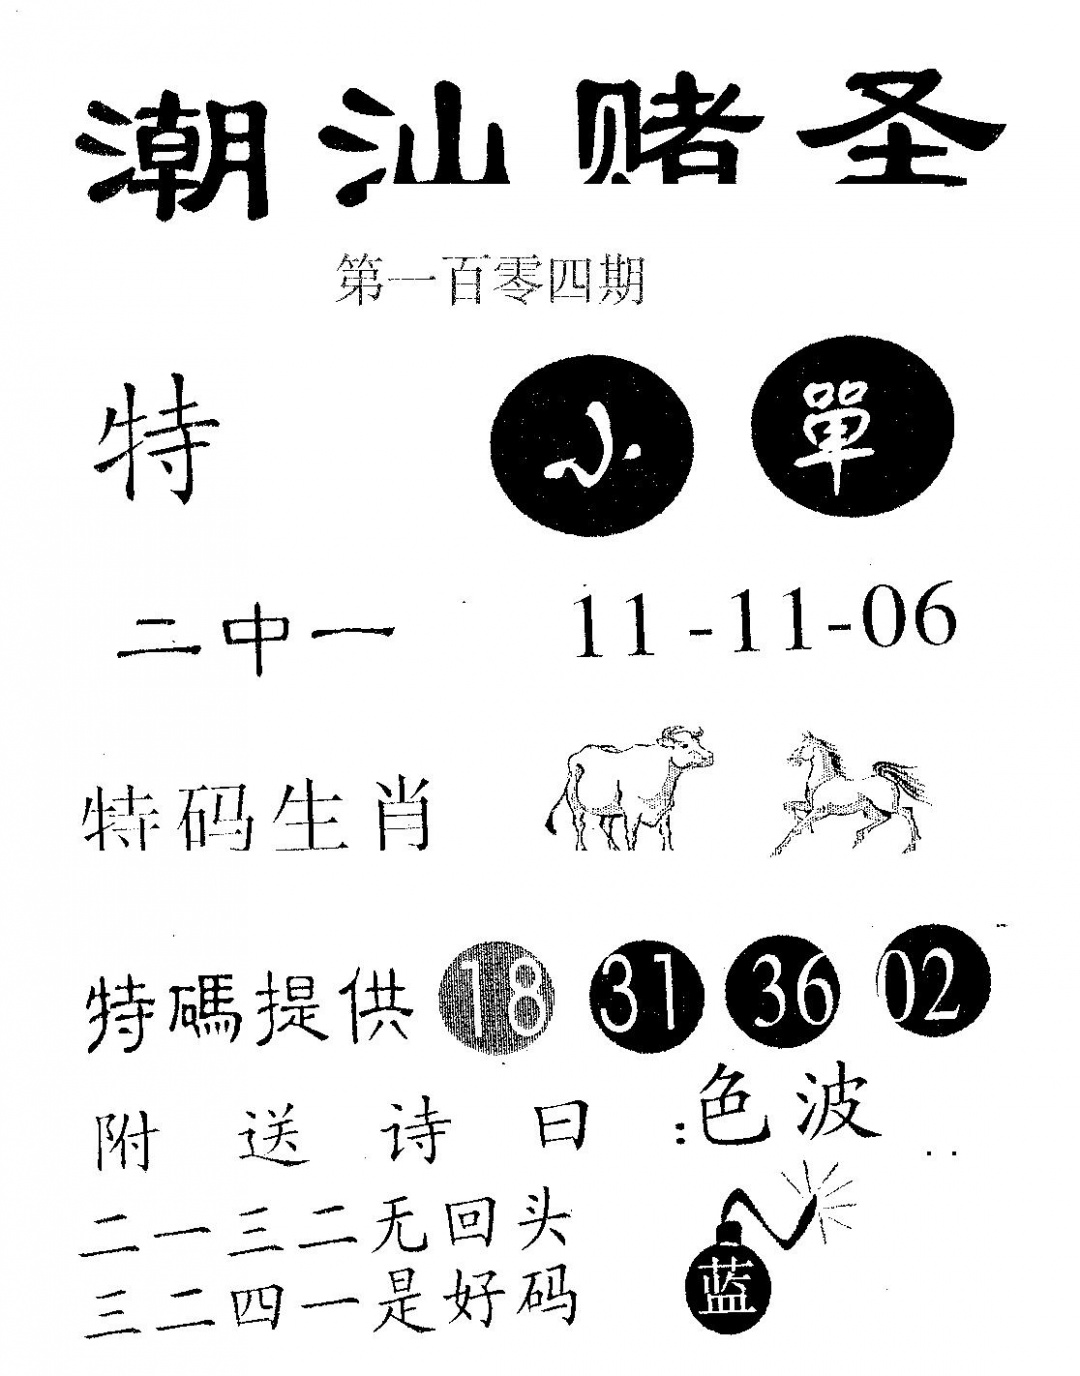 潮汕赌圣
第一百零四期
特 小 單
二中一 11-11-06
特码生肖
特碼提供 18 31 36 02
附送诗曰: 色波
二一三二无回头
三二四一是好码
蓝